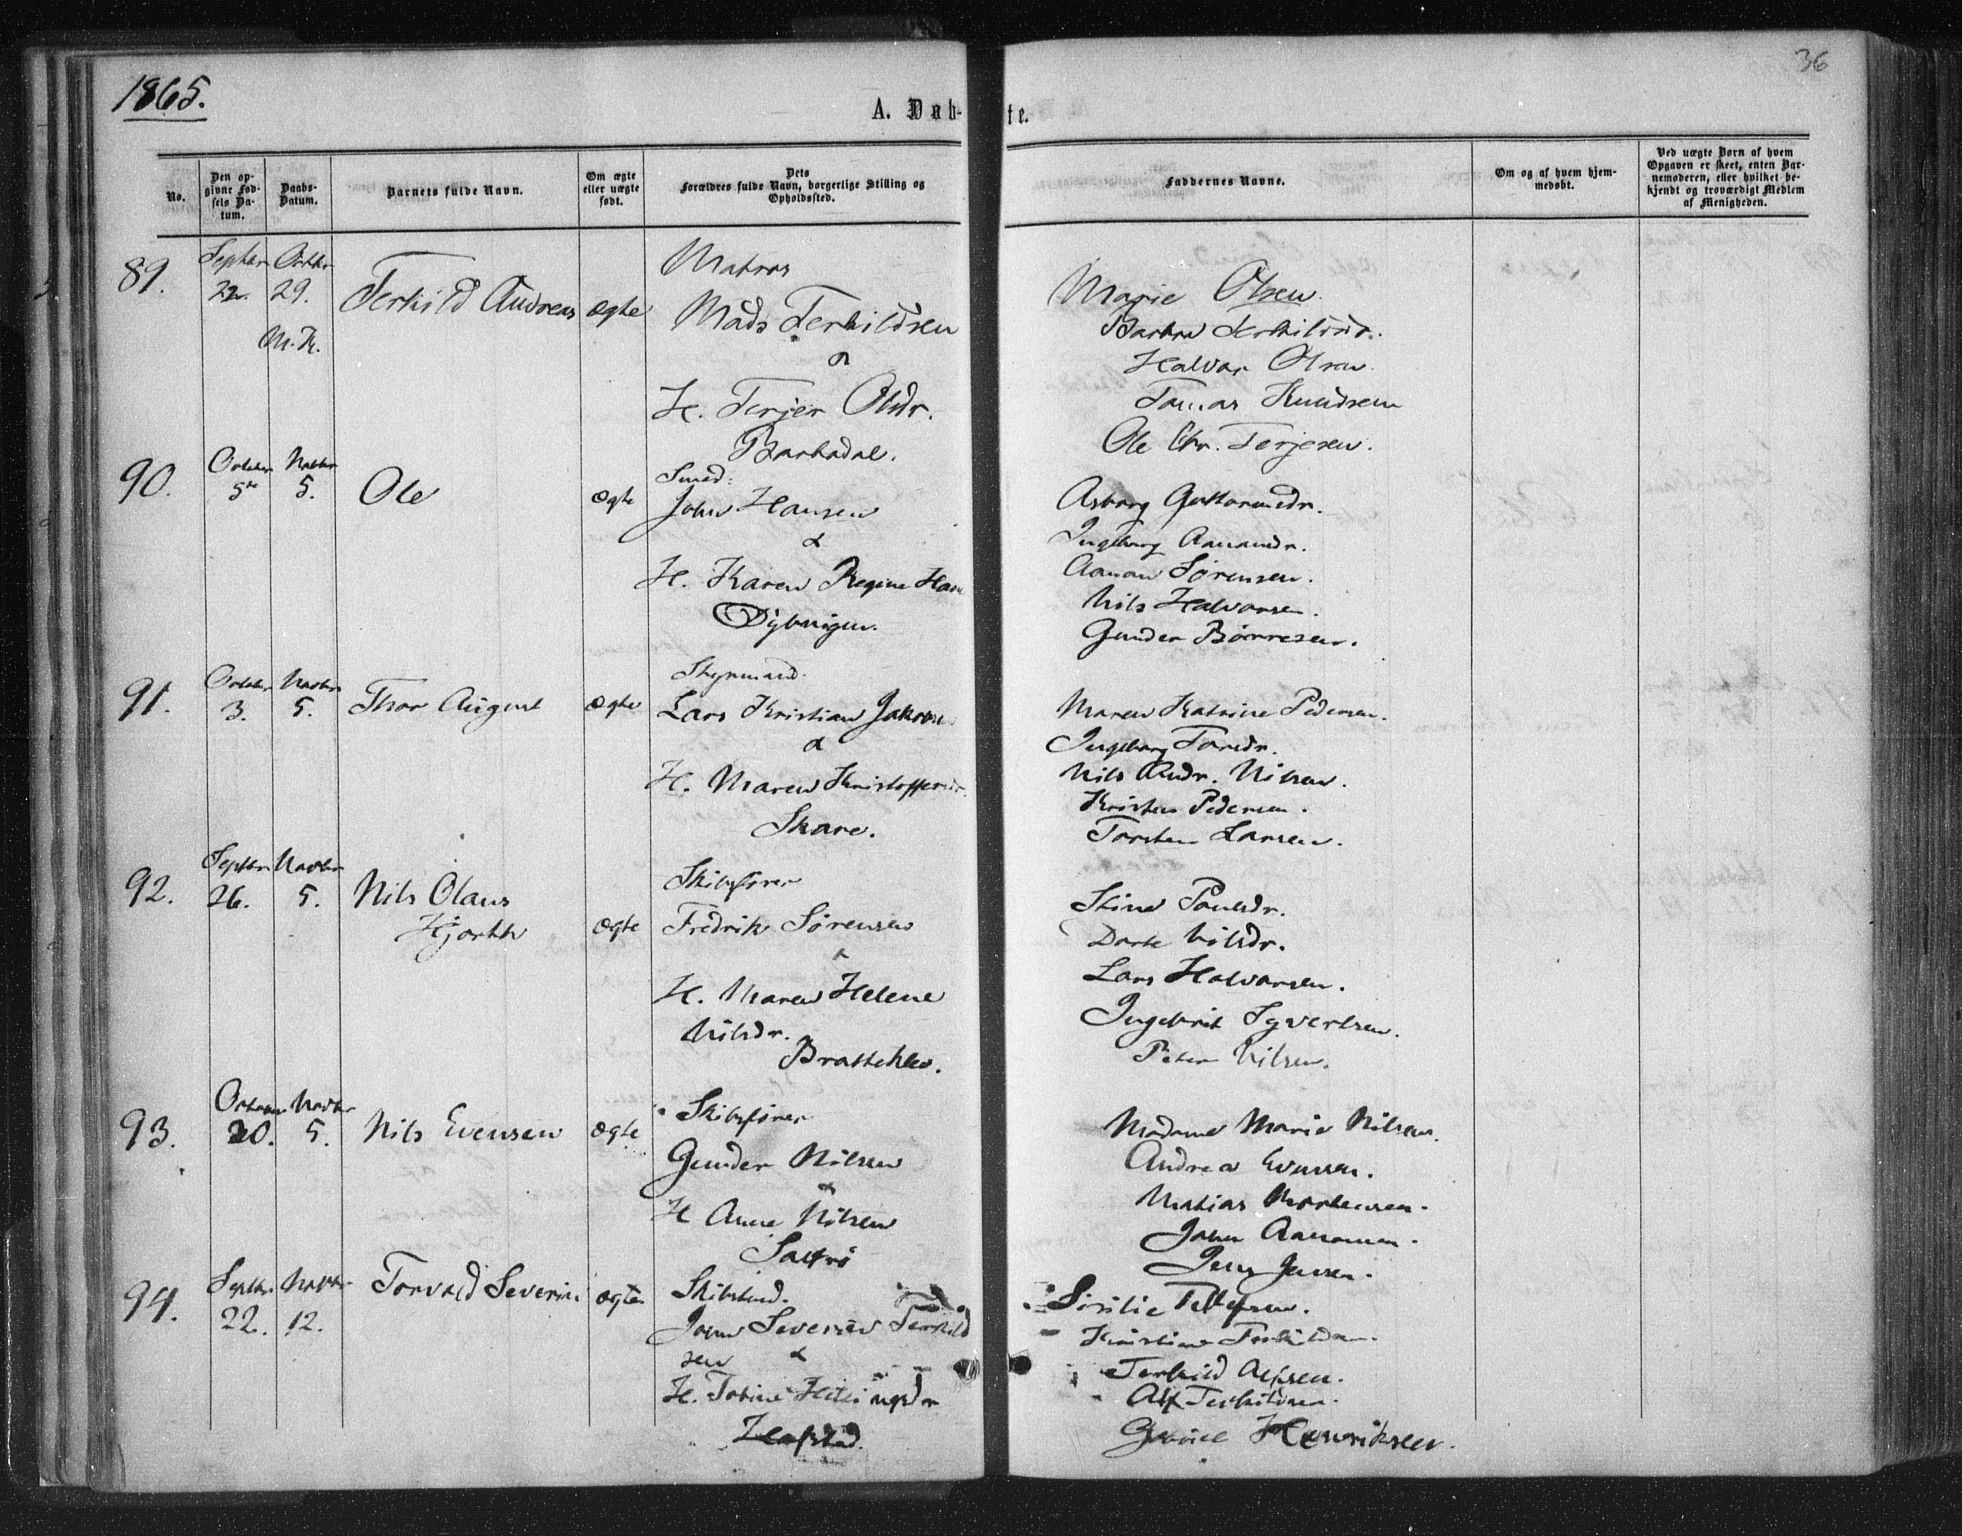 1865.
36
A. Døb-
te.
No.
Den op-
givne Fød-
sels Da-
tum.
Daabs-
Datum.
Barnets fulde Navn.
Om ægte
eller uægte
født.
Dets
Forældres fulde Navn, borgerlige Stilling og
Opholdssted.
Faddernes Navne.
Om og af hvem hjem-
medøbt.
Ved uægte Børn af hvem
Opgaven er skeet, enten Bar-
nemoderen, eller hvilket be-
kjendt og troværdigt Medlem
af Menigheden.
89.
Septbr
22.
Octbr
29.
Terkild Andreas
ægte
Matros
Mads Terkildsen
&
H. Terjer Olsdr.
Marie Olsen
Halvor Olsen
Tomas Knudsen
Ole Chr. Terjesen.
90.
October
5te
Novbr
5.
Ole
ægte
Smed:
John Hansen
&
H. Karen Regine
Dybvigen.
Asborg Guttormsdr.
Ingeborg Aanonsdr.
Aanon Sørensen.
Nils Halvorsen.
Gunder Børresen.
91.
October
3.
Novbr
5.
Thor August
ægte
Styrmand.
Lars Kristian
&
H. Maren
Skare.
Maren Katrine Pedersen.
Ingeborg Torsdr.
Nils Andr. Nilsen.
Kristen Pedersen.
Torsten Larsen.
92.
Septbr
26.
Novbr
5.
Nils Olaus
Hjorth
ægte
Skibsfører
Fredrik Sørensen
&
H. Maren Helene
Nilsdr.
Brattekleiv.
Stine Paulsdr.
Dorte Nilsdr.
Lars Halvorsen.
Ingebrit Syvertsen.
Peter Nilsen.
93.
October
20.
Novbr
5.
Nils Evensen
ægte
Skibsfører
Gunder Nilsen
&
H Anne Nilsen
Saltrø
Madame Marie Nilsen.
Andrea Evensen.
Matias Mortensen.
John Aanonsen.
Jens Jensen.
94.
Septbr
22.
Novbr
12.
Torvald Severin
ægte
Skibstmd.
John Severin Terkild
sen &
H. Tobine
Hafstad.
Kristine Terkildsen.
Terkild Alfsen.
Alf Terkildsen.
Henriksen.